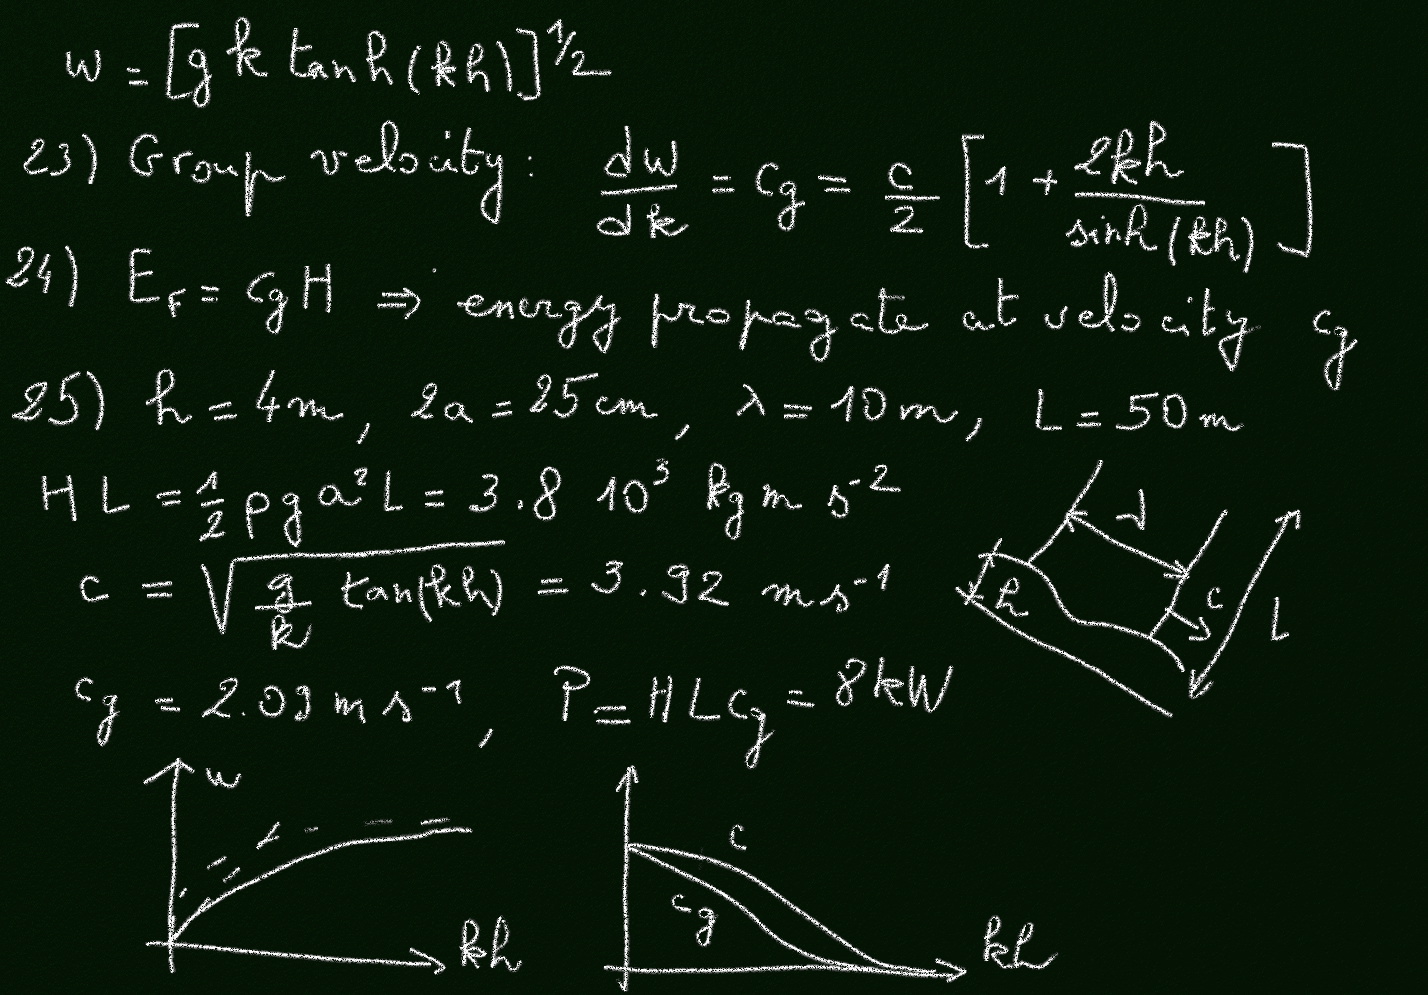 w = [g k tanh(kh)]^1/2
23) Group velocity: dw/dk = cg = c/2 [1 + 2kh/sinh(kh)]
24) E_F = cg H ⇒ energy propagate at velocity cg
25) h = 4m, 2a = 25cm, λ = 10m, L = 50m
HL = 1/2 ρg a² L = 3.8 10³ kg m s⁻²
c = √(g/k tan(kh)) = 3.92 m s⁻¹
cg = 2.09 m s⁻¹, P = HLcg = 8kW
λ
h
c
L
w
kh
c
cg
kh